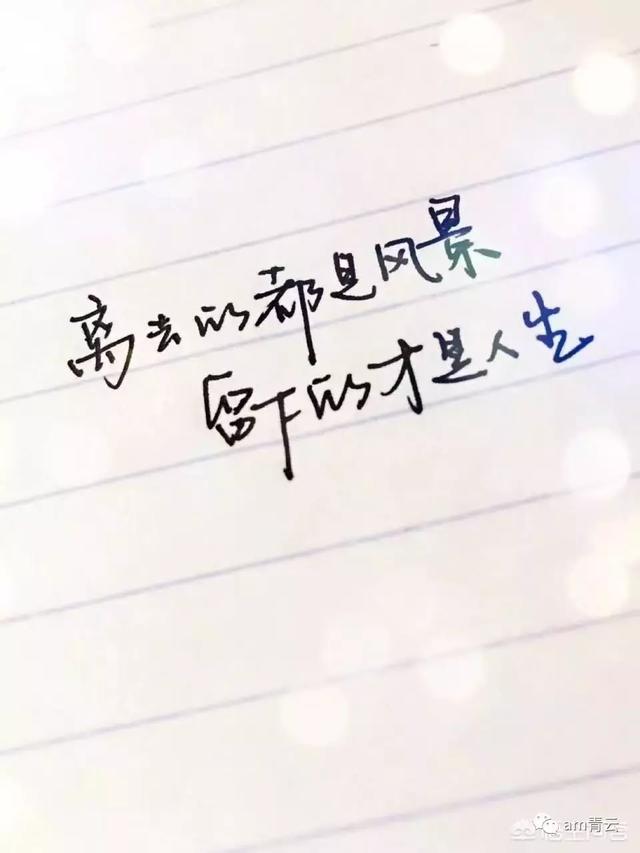 离去的都是风景
留下的才是人生
am青云